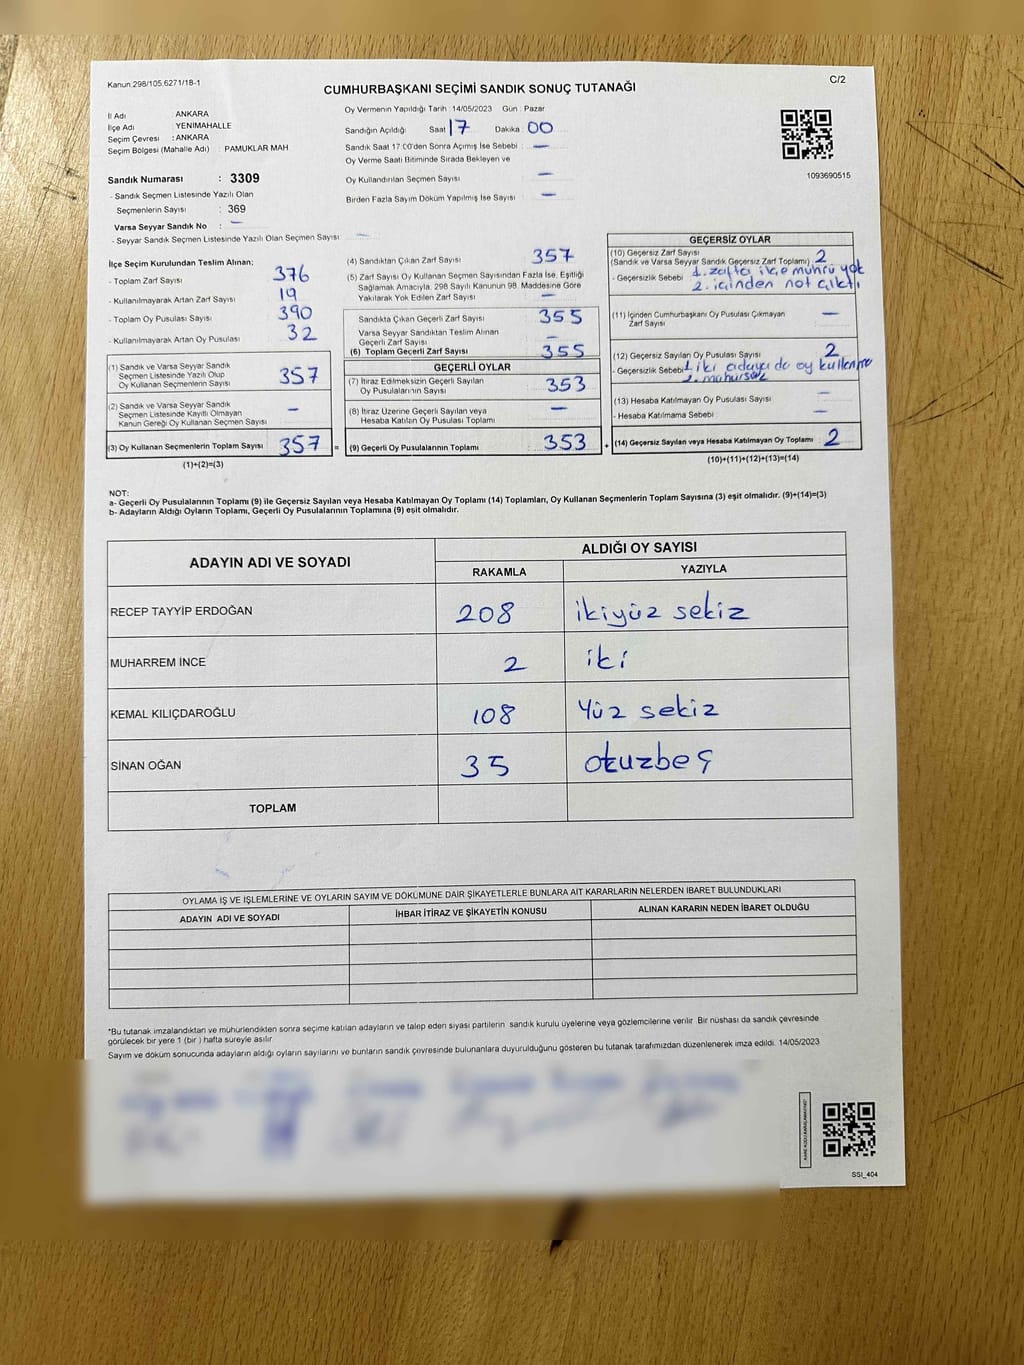 Kanun:298/105.6271/18-1
C/2
CUMHURBAŞKANI SEÇİMİ SANDIK SONUÇ TUTANAĞI
İl Adı : ANKARA
İlçe Adı : YENİMAHALLE
Seçim Çevresi : ANKARA
Seçim Bölgesi (Mahalle Adı) : PAMUKLAR MAH
Sandık Numarası : 3309
- Sandık Seçmen Listesinde Yazılı Olan
Seçmenlerin Sayısı : 369
Varsa Seyyar Sandık No : —
- Seyyar Sandık Seçmen Listesinde Yazılı Olan Seçmen Sayısı: —
Oy Vermenin Yapıldığı Tarih : 14/05/2023 Gün : Pazar
Sandığın Açıldığı Saat 17 Dakika : 00
Sandık Saat 17:00'den Sonra Açılmış İse Sebebi : —
Oy Verme Saati Bitiminde Sırada Bekleyen ve
Oy Kullandırılan Seçmen Sayısı : —
Birden Fazla Sayım Döküm Yapılmış İse Sayısı : —
1093690515
İlçe Seçim Kurulundan Teslim Alınan:
- Toplam Zarf Sayısı : 376
- Kullanılmayarak Artan Zarf Sayısı : 19
- Toplam Oy Pusulası Sayısı : 390
- Kullanılmayarak Artan Oy Pusulası : 32
(1) Sandık ve Varsa Seyyar Sandık
Seçmen Listesinde Yazılı Olup
Oy Kullanan Seçmenlerin Sayısı : 357
(2) Sandık ve Varsa Seyyar Sandık
Seçmen Listesinde Kayıtlı Olmayan
Kanun Gereği Oy Kullanan Seçmen Sayısı : —
(3) Oy Kullanan Seçmenlerin Toplam Sayısı : 357 =
(1)+(2)=(3)
(4) Sandıktan Çıkan Zarf Sayısı : 357
(5) Zarf Sayısı Oy Kullanan Seçmen Sayısından Fazla İse, Eşitliği
Sağlamak Amacıyla, 298 Sayılı Kanunun 98. Maddesine Göre
Yakılarak Yok Edilen Zarf Sayısı : —
Sandıkta Çıkan Geçerli Zarf Sayısı : 355
Varsa Seyyar Sandıktan Teslim Alınan
Geçerli Zarf Sayısı : —
(6) Toplam Geçerli Zarf Sayısı : 355
GEÇERLİ OYLAR
(7) İtiraz Edilmeksizin Geçerli Sayılan
Oy Pusulalarının Sayısı : 353
(8) İtiraz Üzerine Geçerli Sayılan veya
Hesaba Katılan Oy Pusulası Toplamı : —
(9) Geçerli Oy Pusulalarının Toplamı : 353 +
GEÇERSİZ OYLAR
(10) Geçersiz Zarf Sayısı
(Sandık ve Varsa Seyyar Sandık Geçersiz Zarf Toplamı) : 2
- Geçersizlik Sebebi : 1. zafta ilçe mührü yok
2. içinden not çıktı
(11) İçinden Cumhurbaşkanı Oy Pusulası Çıkmayan
Zarf Sayısı : —
(12) Geçersiz Sayılan Oy Pusulası Sayısı : 2
- Geçersizlik Sebebi : 1. iki adaya da oy kullanma
2. mühürsüz
(13) Hesaba Katılmayan Oy Pusulası Sayısı : —
- Hesaba Katılmama Sebebi : —
(14) Geçersiz Sayılan veya Hesaba Katılmayan Oy Toplamı : 2
(10)+(11)+(12)+(13)=(14)
NOT:
a- Geçerli Oy Pusulalarının Toplamı (9) ile Geçersiz Sayılan veya Hesaba Katılmayan Oy Toplamı (14) Toplamları, Oy Kullanan Seçmenlerin Toplam Sayısına (3) eşit olmalıdır. (9)+(14)=(3)
b- Adayların Aldığı Oyların Toplamı, Geçerli Oy Pusulalarının Toplamına (9) eşit olmalıdır.
ADAYIN ADI VE SOYADI ALDIĞI OY SAYISI
RAKAMLA YAZIYLA
RECEP TAYYİP ERDOĞAN 208 ikiyüz sekiz
MUHARREM İNCE 2 iki
KEMAL KILIÇDAROĞLU 108 Yüz sekiz
SİNAN OĞAN 35 otuzbeş
TOPLAM
OYLAMA İŞ VE İŞLEMLERİNE VE OYLARIN SAYIM VE DÖKÜMÜNE DAİR ŞİKAYETLERLE BUNLARA AİT KARARLARIN NELERDEN İBARET BULUNDUKLARI
ADAYIN ADI VE SOYADI İHBAR İTİRAZ VE ŞİKAYETİN KONUSU ALINAN KARARIN NEDEN İBARET OLDUĞU
*Bu tutanak imzalandıktan ve mühürlendikten sonra seçime katılan adayların ve talep eden siyasi partilerin sandık kurulu üyelerine veya gözlemcilerine verilir. Bir nüshası da sandık çevresinde
görülecek bir yere 1 (bir ) hafta süreyle asılır.
Sayım ve döküm sonucunda adayların aldığı oyların sayılarını ve bunların sandık çevresinde bulunanlara duyurulduğunu gösteren bu tutanak tarafımızdan düzenlenerek imza edildi. 14/05/2023
SSI_404